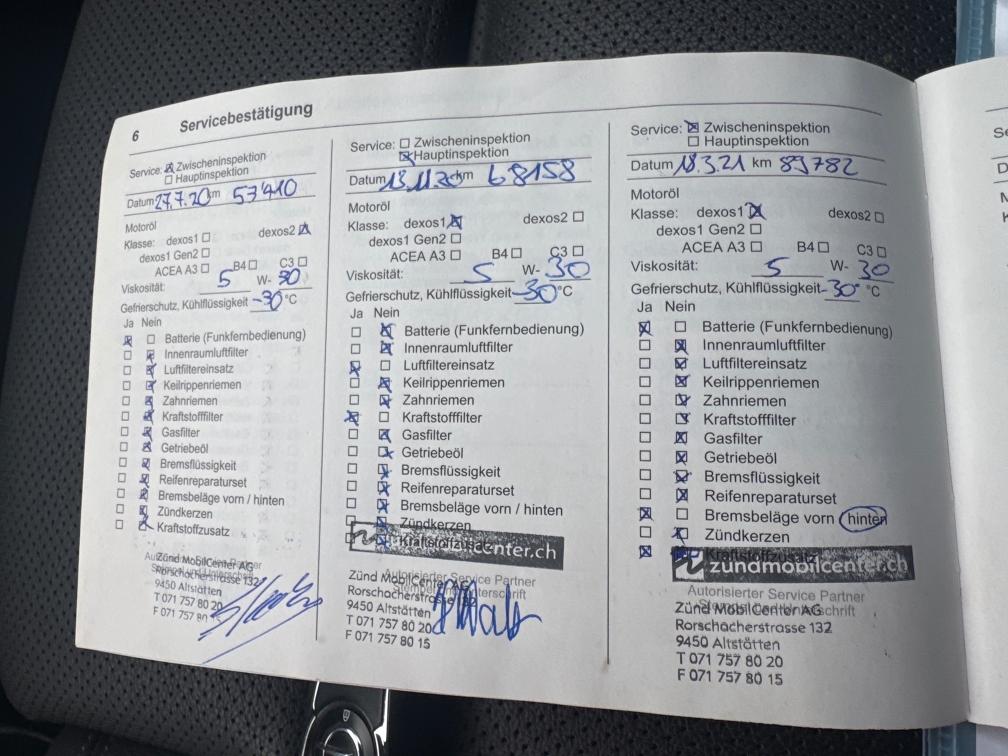 6 Servicebestätigung
Service: ☒ Zwischeninspektion
☐ Hauptinspektion
Datum 27.7.20 km 53'410
Motoröl
Klasse: dexos1 ☐ dexos2 ☒
dexos1 Gen2 ☐
ACEA A3 ☐ B4 ☐ C3 ☐
Viskosität: 5 W- 30
Gefrierschutz, Kühlflüssigkeit -30 °C
Ja Nein
☒ ☐ Batterie (Funkfernbedienung)
☐ ☒ Innenraumluftfilter
☐ ☒ Luftfiltereinsatz
☐ ☒ Keilrippenriemen
☐ ☒ Zahnriemen
☐ ☒ Kraftstofffilter
☐ ☒ Gasfilter
☐ ☒ Getriebeöl
☐ ☒ Bremsflüssigkeit
☐ ☒ Reifenreparaturset
☐ ☒ Bremsbeläge vorn / hinten
☐ ☒ Zündkerzen
☐ ☒ Kraftstoffzusatz
Zünd MobilCenter AG
Rorschacherstrasse 132
9450 Altstätten
T 071 757 80 20
F 071 757 80 15
Service: ☐ Zwischeninspektion
☒ Hauptinspektion
Datum 13.11.20 km 68158
Motoröl
Klasse: dexos1 ☒ dexos2 ☐
dexos1 Gen2 ☐
ACEA A3 ☐ B4 ☐ C3 ☐
Viskosität: 5 W- 30
Gefrierschutz, Kühlflüssigkeit -30 °C
Ja Nein
☐ ☒ Batterie (Funkfernbedienung)
☐ ☒ Innenraumluftfilter
☒ ☐ Luftfiltereinsatz
☐ ☒ Keilrippenriemen
☐ ☒ Zahnriemen
☒ ☐ Kraftstofffilter
☐ ☒ Gasfilter
☐ ☒ Getriebeöl
☐ ☒ Bremsflüssigkeit
☐ ☒ Reifenreparaturset
☐ ☒ Bremsbeläge vorn / hinten
☐ ☒ Zündkerzen
☐ ☒ Kraftstoffzusatz
center.ch
Autorisierter Service Partner
Zünd MobilCenter AG
Rorschacherstrasse 132
9450 Altstätten
T 071 757 80 20
F 071 757 80 15
Service: ☒ Zwischeninspektion
☐ Hauptinspektion
Datum 18.3.21 km 89782
Motoröl
Klasse: dexos1 ☒ dexos2 ☐
dexos1 Gen2 ☐
ACEA A3 ☐ B4 ☐ C3 ☐
Viskosität: 5 W- 30
Gefrierschutz, Kühlflüssigkeit -30° °C
Ja Nein
☒ ☐ Batterie (Funkfernbedienung)
☐ ☒ Innenraumluftfilter
☐ ☒ Luftfiltereinsatz
☐ ☒ Keilrippenriemen
☐ ☒ Zahnriemen
☐ ☒ Kraftstofffilter
☐ ☒ Gasfilter
☐ ☒ Getriebeöl
☐ ☒ Bremsflüssigkeit
☐ ☒ Reifenreparaturset
☒ ☐ Bremsbeläge vorn hinten
☐ ☒ Zündkerzen
☒ Kraftstoffzusatz
zündmobilcenter.ch
Autorisierter Service Partner
Zünd MobilCenter AG
Rorschacherstrasse 132
9450 Altstätten
T 071 757 80 20
F 071 757 80 15